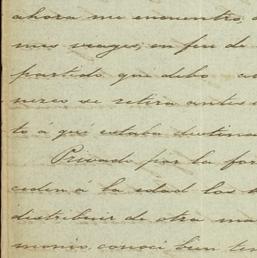 ahora me encuentro,
mis viages, en fin de
partido que debo
nero se retira antes
to á qué estaba destina
Privado por la for
ceden á la edad los
distribuir de otra ma
monio, conocí bien